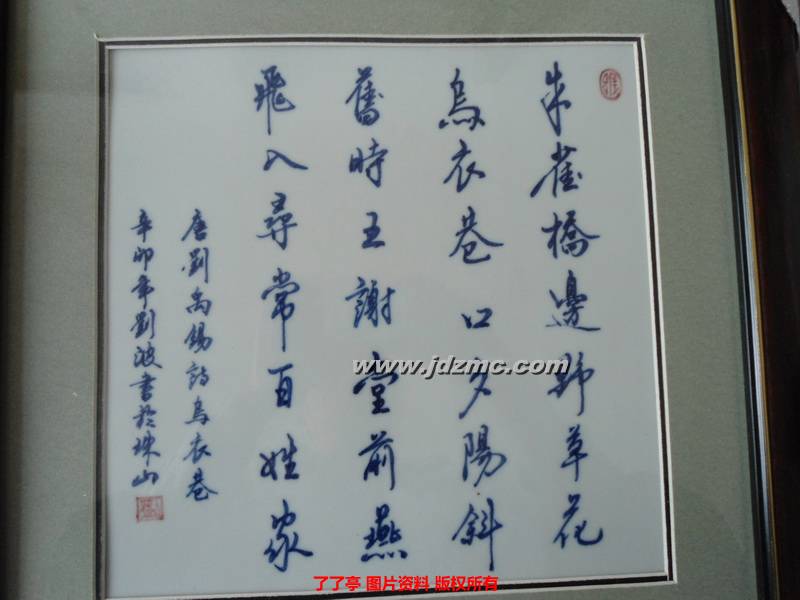 朱雀橋邊野草花
烏衣巷口夕陽斜
舊時王謝堂前燕
飛入尋常百姓家
唐劉禹錫詩烏衣巷
辛卯年劉波書於珠山
www.jdzmc.com
了了亭 图片资料 版权所有